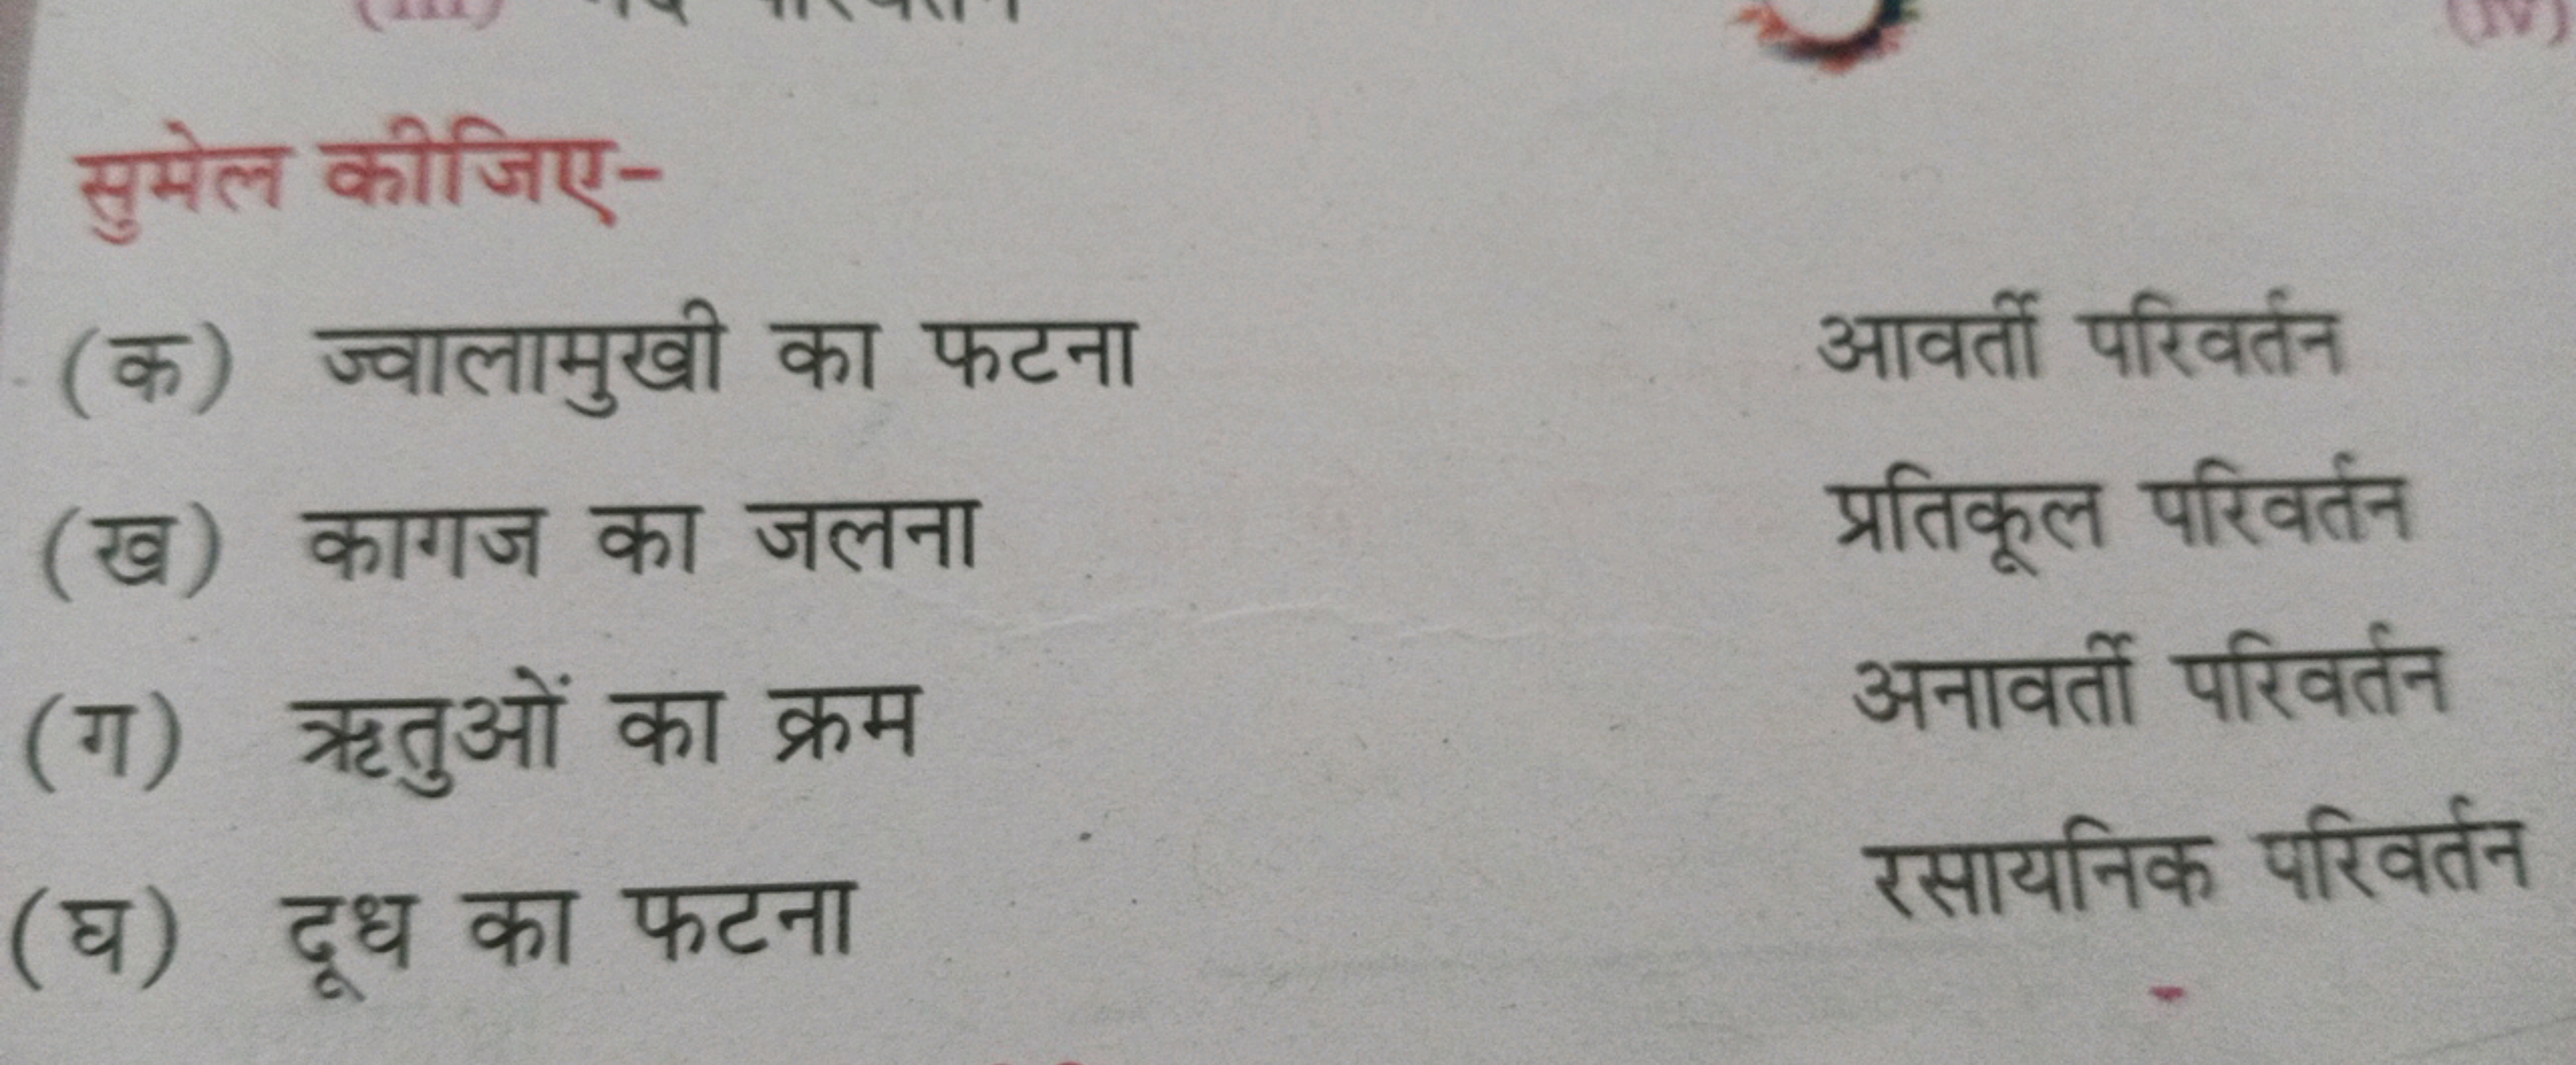 (iii)
(iv)
सुमेल कीजिए-
(क) ज्वालामुखी का फटना आवर्ती परिवर्तन
(ख) कागज का जलना प्रतिकूल परिवर्तन
(ग) ऋतुओं का क्रम अनावर्ती परिवर्तन
(घ) दूध का फटना रसायनिक परिवर्तन